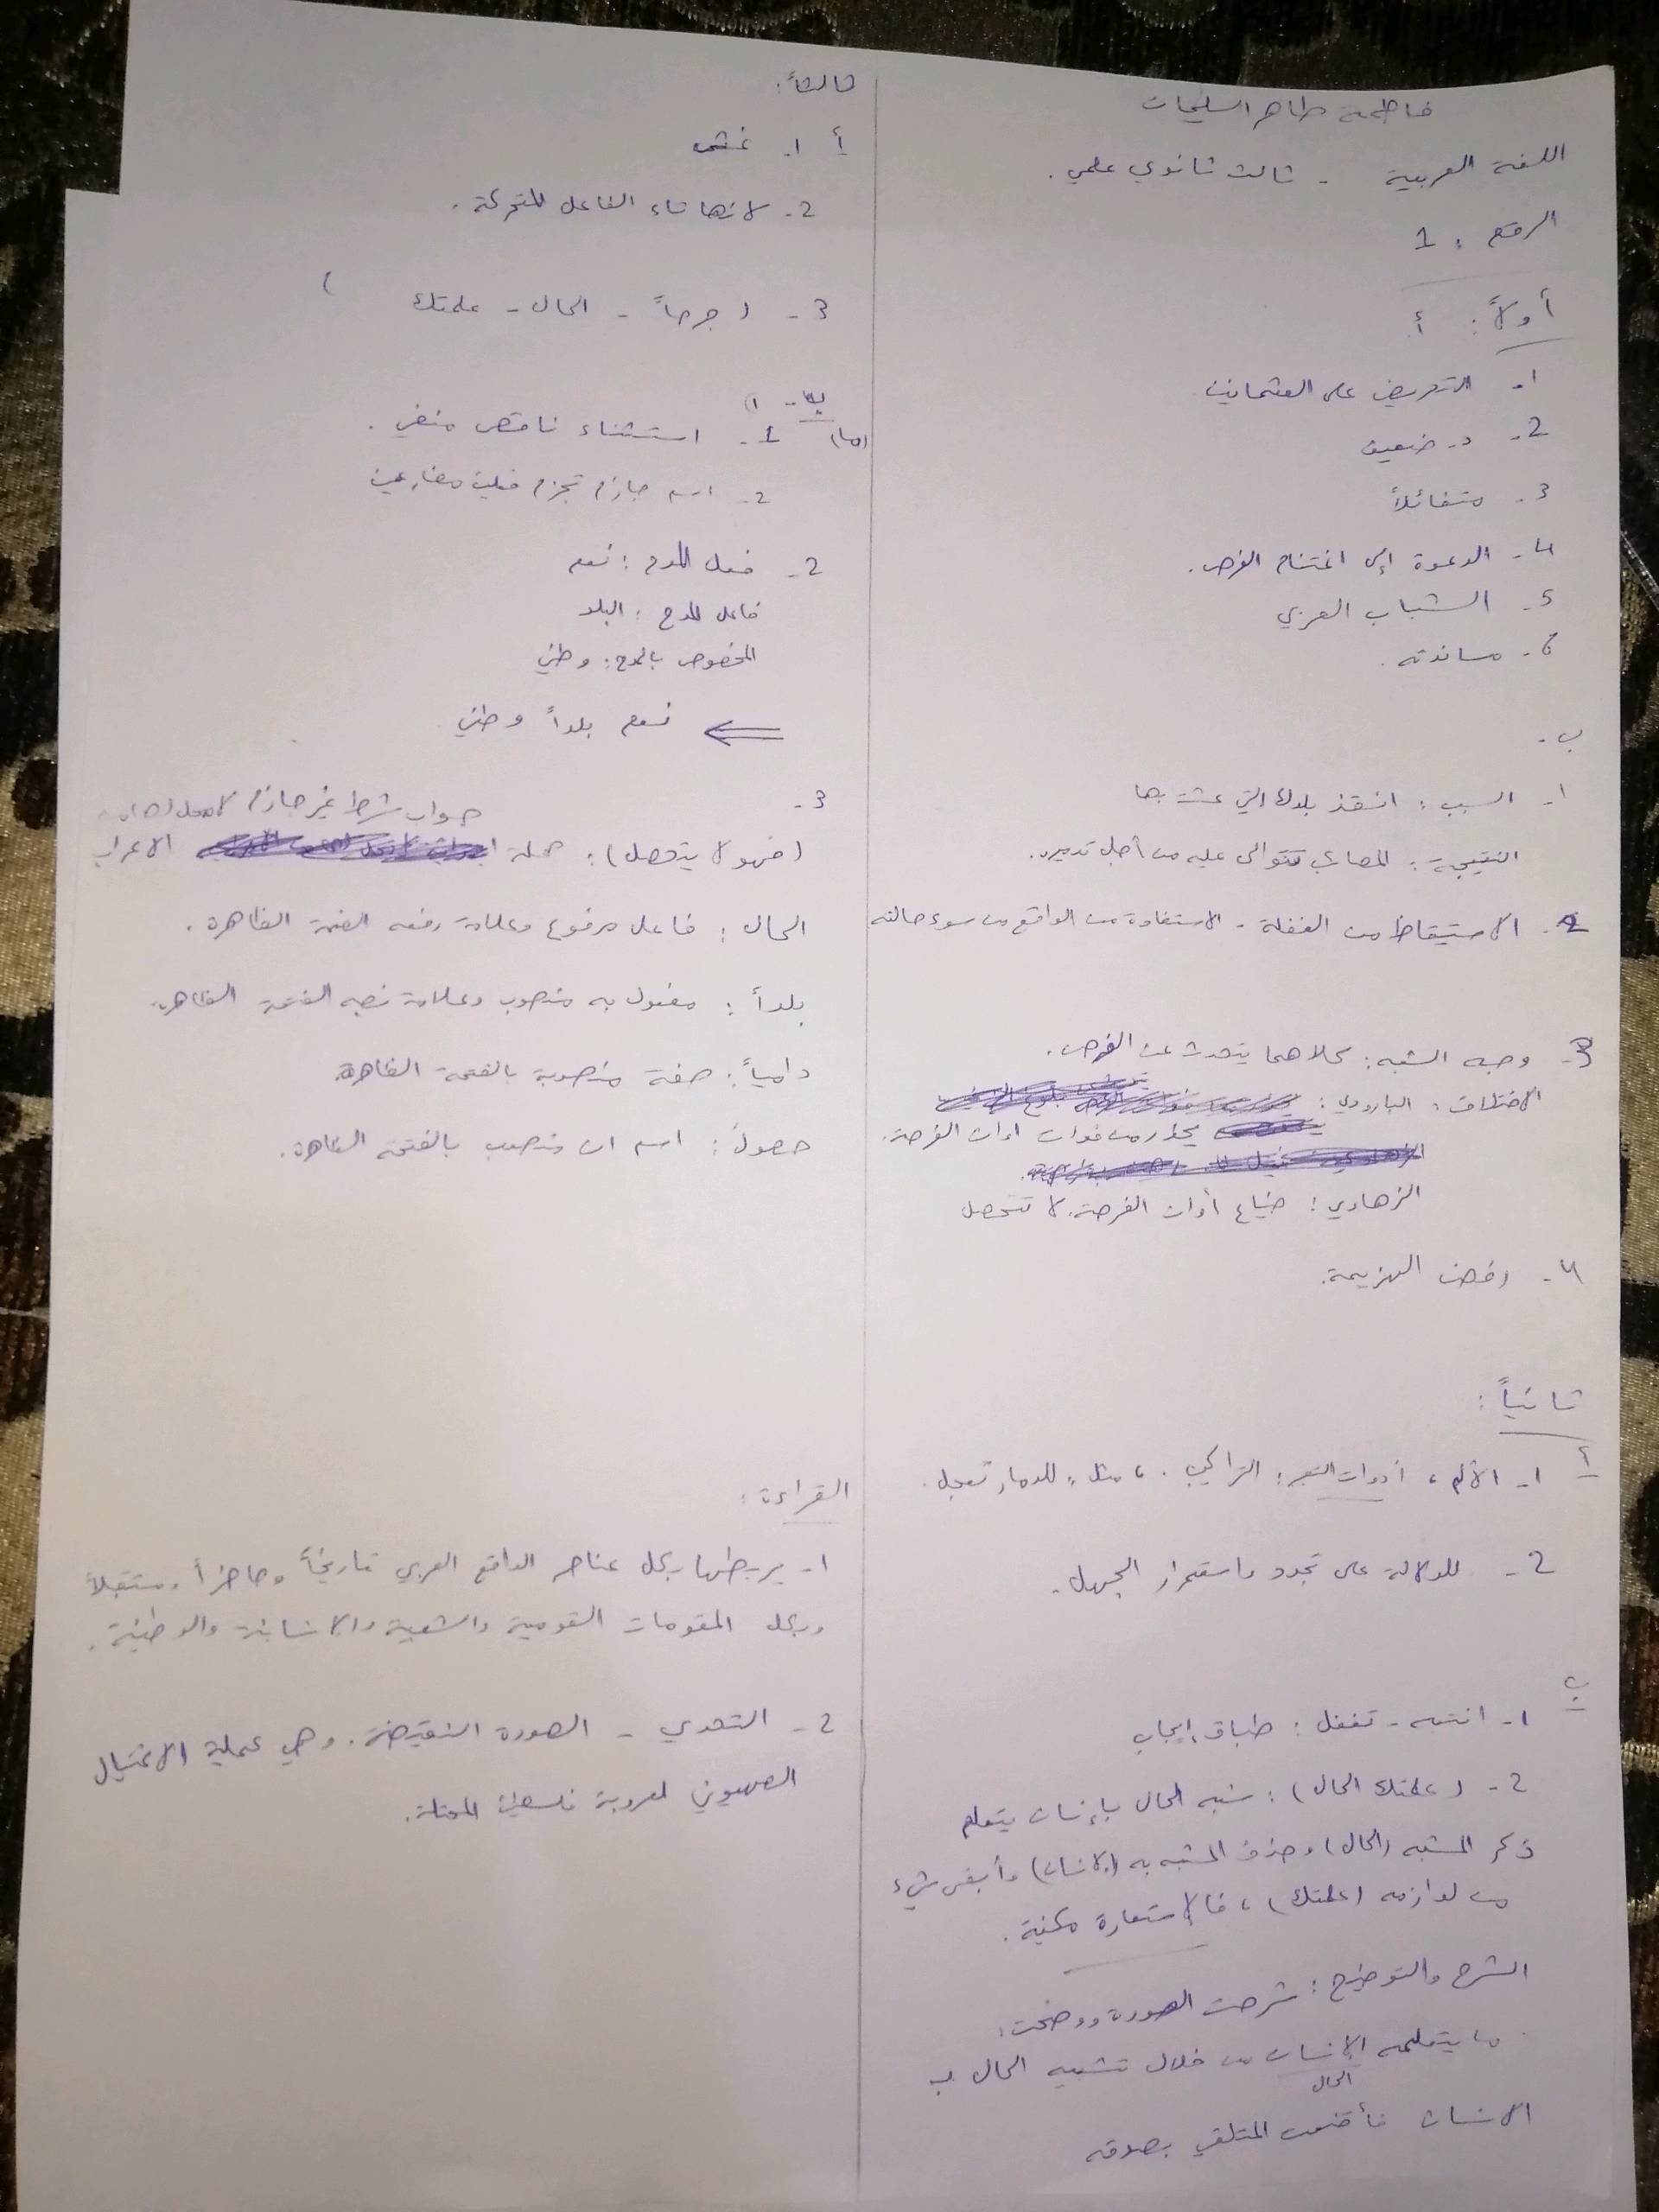 فاطمة طاهر السليمان
اللغة العربية - ثالث ثانوي علمي.
الرقم : 1
أولاً : أ
1- التحريض على العثمانيين
2- د. ضعيف
3- متفائلاً
4- الدعوة إلى اغتنام الفرص.
5- الشباب العربي
6- مساندته.
ب -
1- السبب : انقذ بلدك التي عشت بها
النتيجة : المصائب تتوالى عليه من أجل تدميره.
2- الاستيقاظ من الغفلة - الاستفادة من الواقع من سوء حالته
3- وجه الشبه : كلاهما يتحدث عن الفرص.
الاختلاف : البارودي :
يحذر من فوات اوان الفرصة.
الزهاوي : ضياع أوان الفرصة. لا تتحصل
4- رفض الهزيمة.
ثانياً :
أ 1- الألم ، أدوات التعبير : التراكيب . ، مثل : للدمار تعجل.
2- للدلالة على تجدد واستمرار الجهل.
ب
1- انتبه - تغفل : طباق إيجاب
2- (علمتك الحال) : شبه الحال بإنسان يتعلم
ذكر المشبه (الحال) وحذف المشبه به (الانسان) وأبقى شيء
من لوازمه (علمتك) ، فالإستعارة مكنية .
الشرح والتوضيح : شرحت الصورة ووضحت :
ما يتعلمه الإنسان من خلال تشبيه الحال ب
الحال
الانسان فأقنعت المتلقي بصدقه
ثالثاً :
أ 1- غشي
2- لانها تاء الفاعل المتحركة .
3- ( جرحاً - الحال - علمتك )
ب - 1)
(ما) 1- استثناء ناقص منفي .
2- اسم جازم تجزم فعلين مضارعين
2- فعل المدح : نعم
فاعل المدح : البلد
المخصوص بالمدح : وطني
نعم بلداً وطني
3-
جواب شرط غير جازم لا محل لها من
(فهو لا يتحصل) : جملة الاعراب
الحال : فاعل مرفوع وعلامة رفعه الضمة الظاهرة .
بلداً : مفعول به منصوب وعلامة نصبه الفتحة الظاهرة.
دامياً : صفة منصوبة بالفتحة الظاهرة
حصولَ : اسم ان منصوب بالفتحة الظاهرة.
القراءة :
1- يربطها بكل عناصر الواقع العربي تاريخاً وحاضراً ومستقبلاً
وبكل المقومات القومية والشعبية والانسانية والوطنية .
2- التحدي - الصورة النقيضة . وهي عملية الاغتيال
الصهيوني لعروبة فلسطين المحتلة.